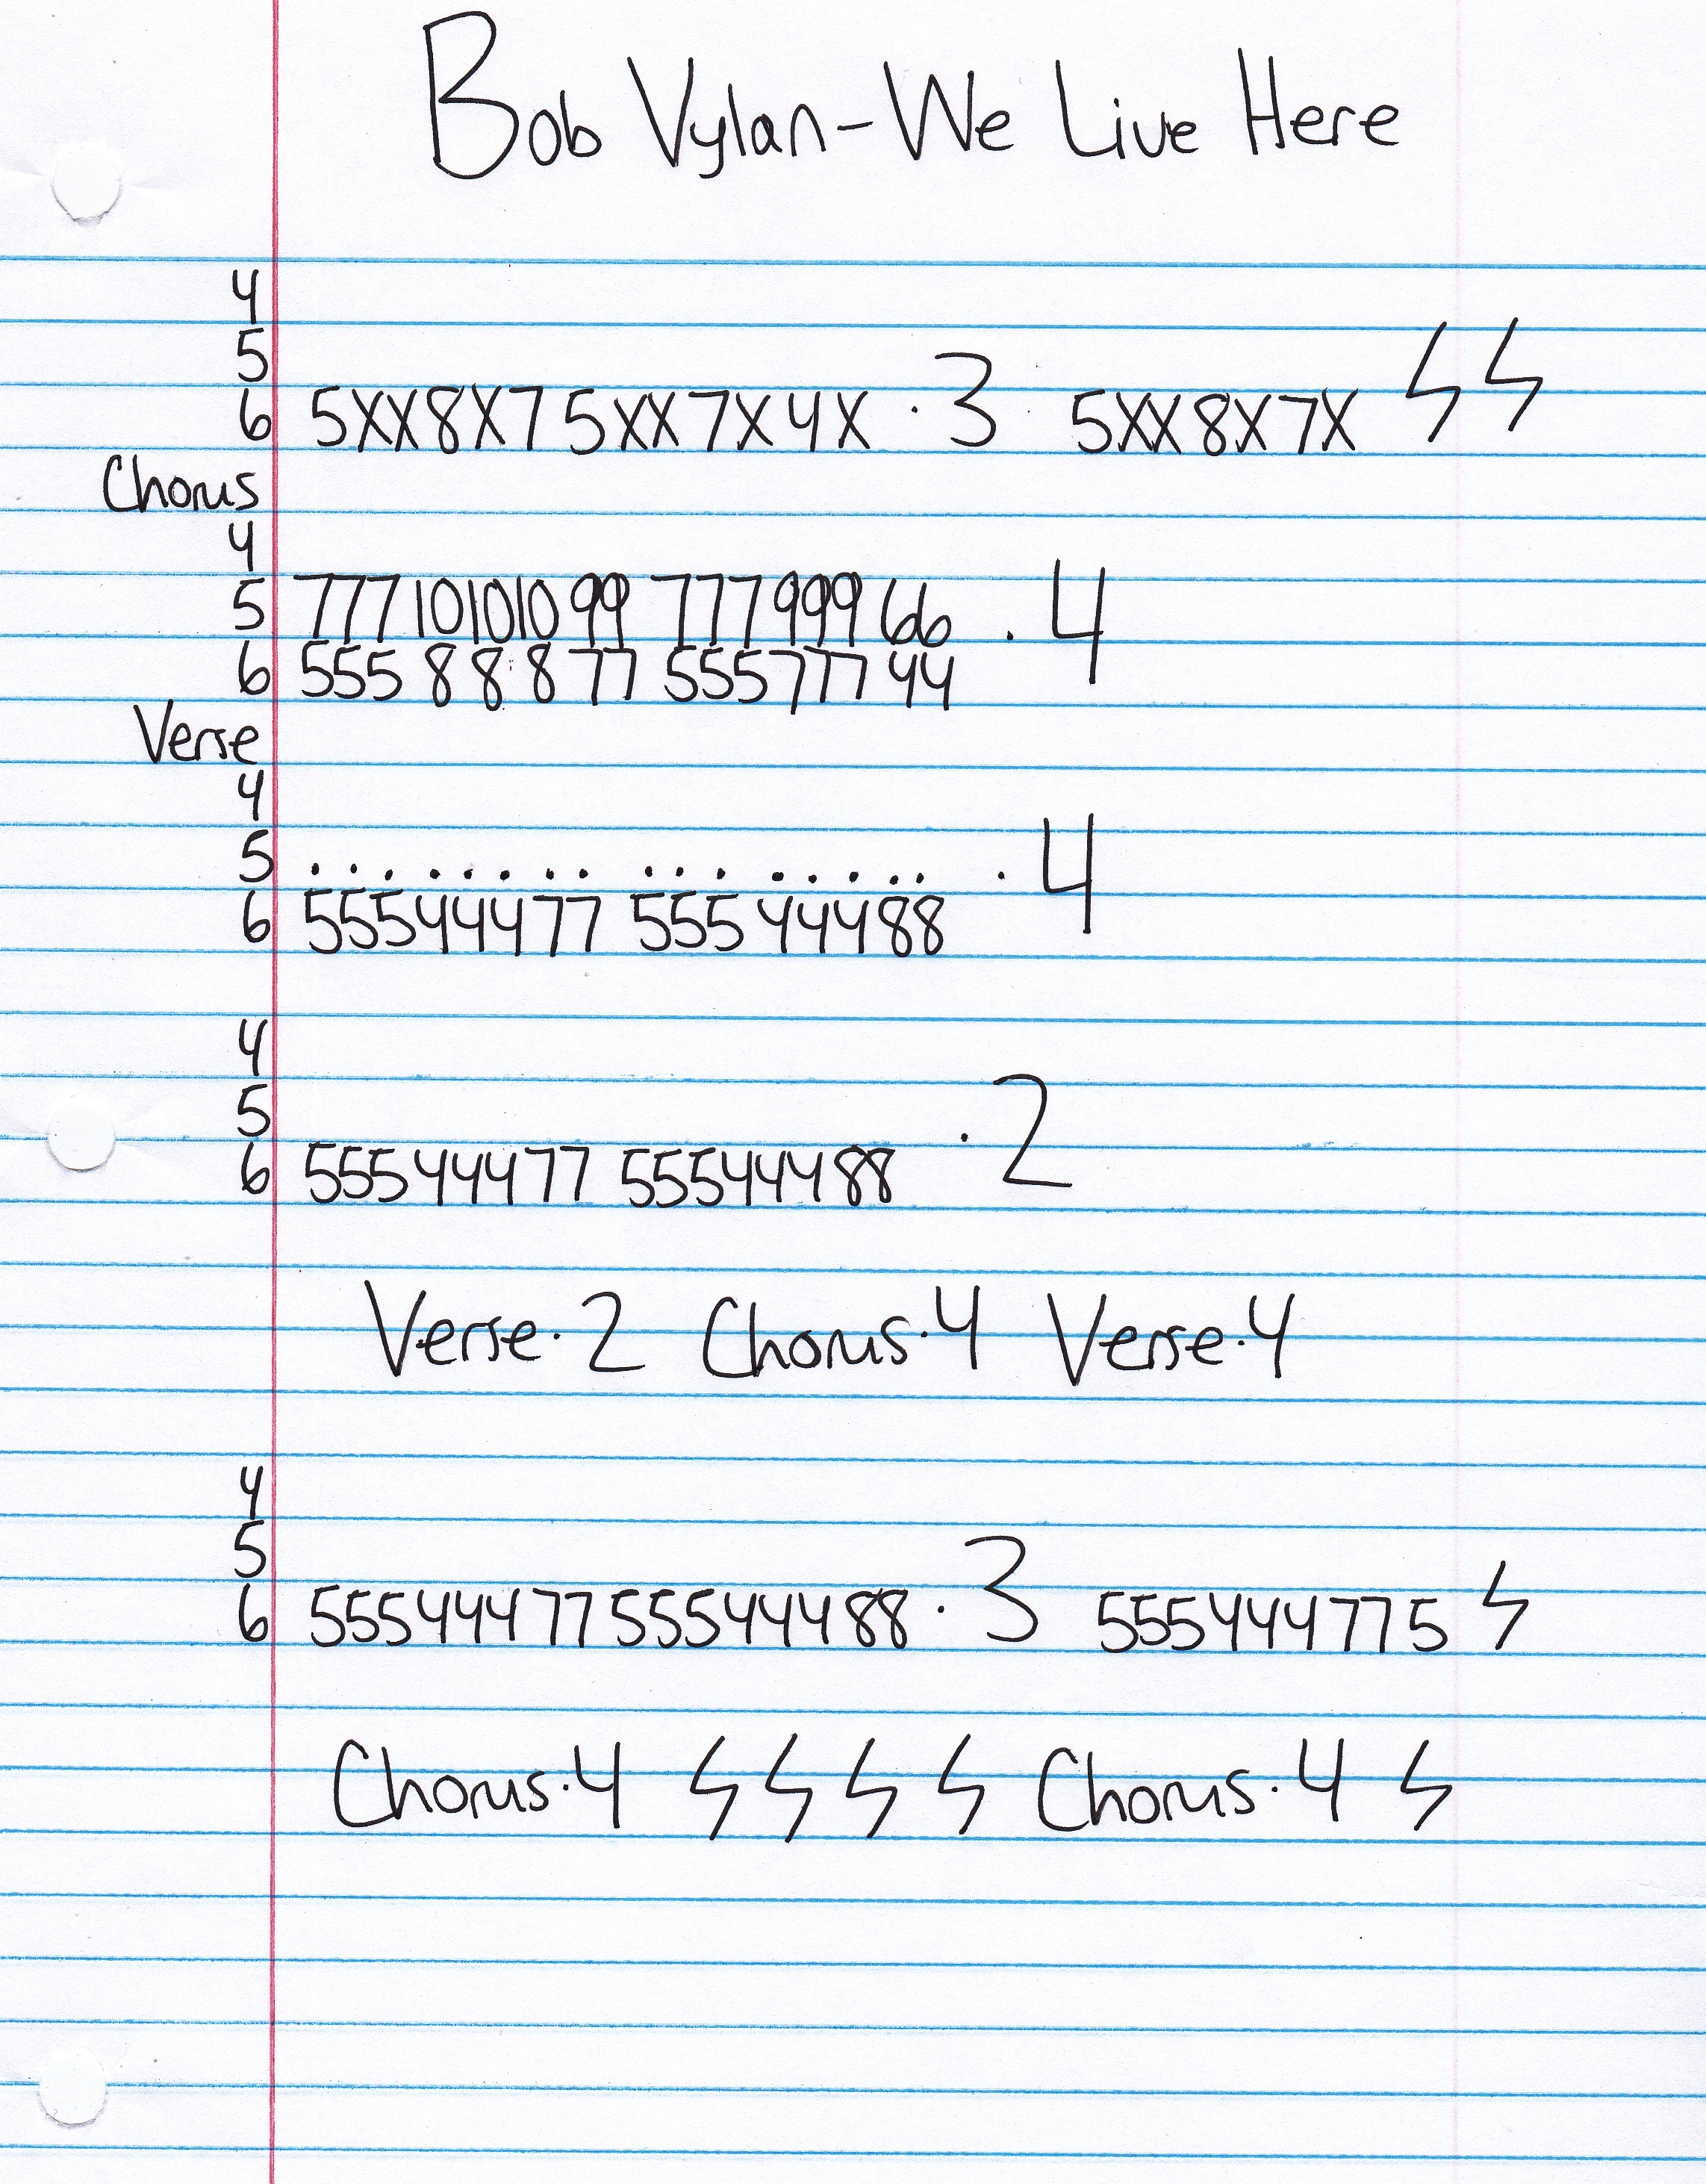 Bob Vylan-We Live Here
4
5
6 5XX8X7 5XX7X4X · 3 5XX8X7X ϟ ϟ
Chorus
4
5 777 10 10 10 99 777 999 66 · 4
6 555 8 8 8 77 555777 44
Verse
4
5 . . . . . . . . . . . . . . . . · 4
6 55544477 555 44488
4
5
6 55544477 55544488 · 2
Verse·2 Chorus·4 Verse·4
4
5
6 5554447755544488 · 3 555444775 ϟ
Chorus·4 ϟ ϟ ϟ ϟ Chorus·4 ϟ